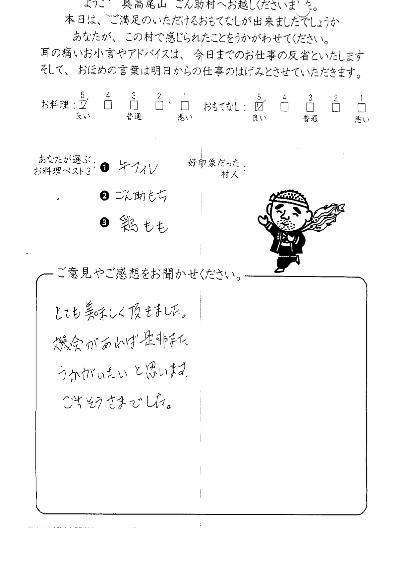 ようこそ 奥高尾山 ごん助村へお越しくださいました。
本日は、ご満足のいただけるおもてなしが出来ましたでしょうか
あなたが、この村で感じられたことをうかがわせてください。
耳の痛いお小言やアドバイスは、今日までのお仕事の反省といたします
そして、おほめの言葉は明日からの仕事のはげみとさせていただきます。
お料理: 5 4 3 2 1 おもてなし: 5 4 3 2 1
良い 普通 悪い 良い 普通 悪い
あなたが選ぶ
お料理ベスト3
❶ 牛フィレ
❷ ごん助もち
❸ 鶏もも
好印象だった
村人
ご意見やご感想をお聞かせください。
とても美味しく頂きました。
機会があれば是非また
うかがいたいと思います。
ごちそうさまでした。